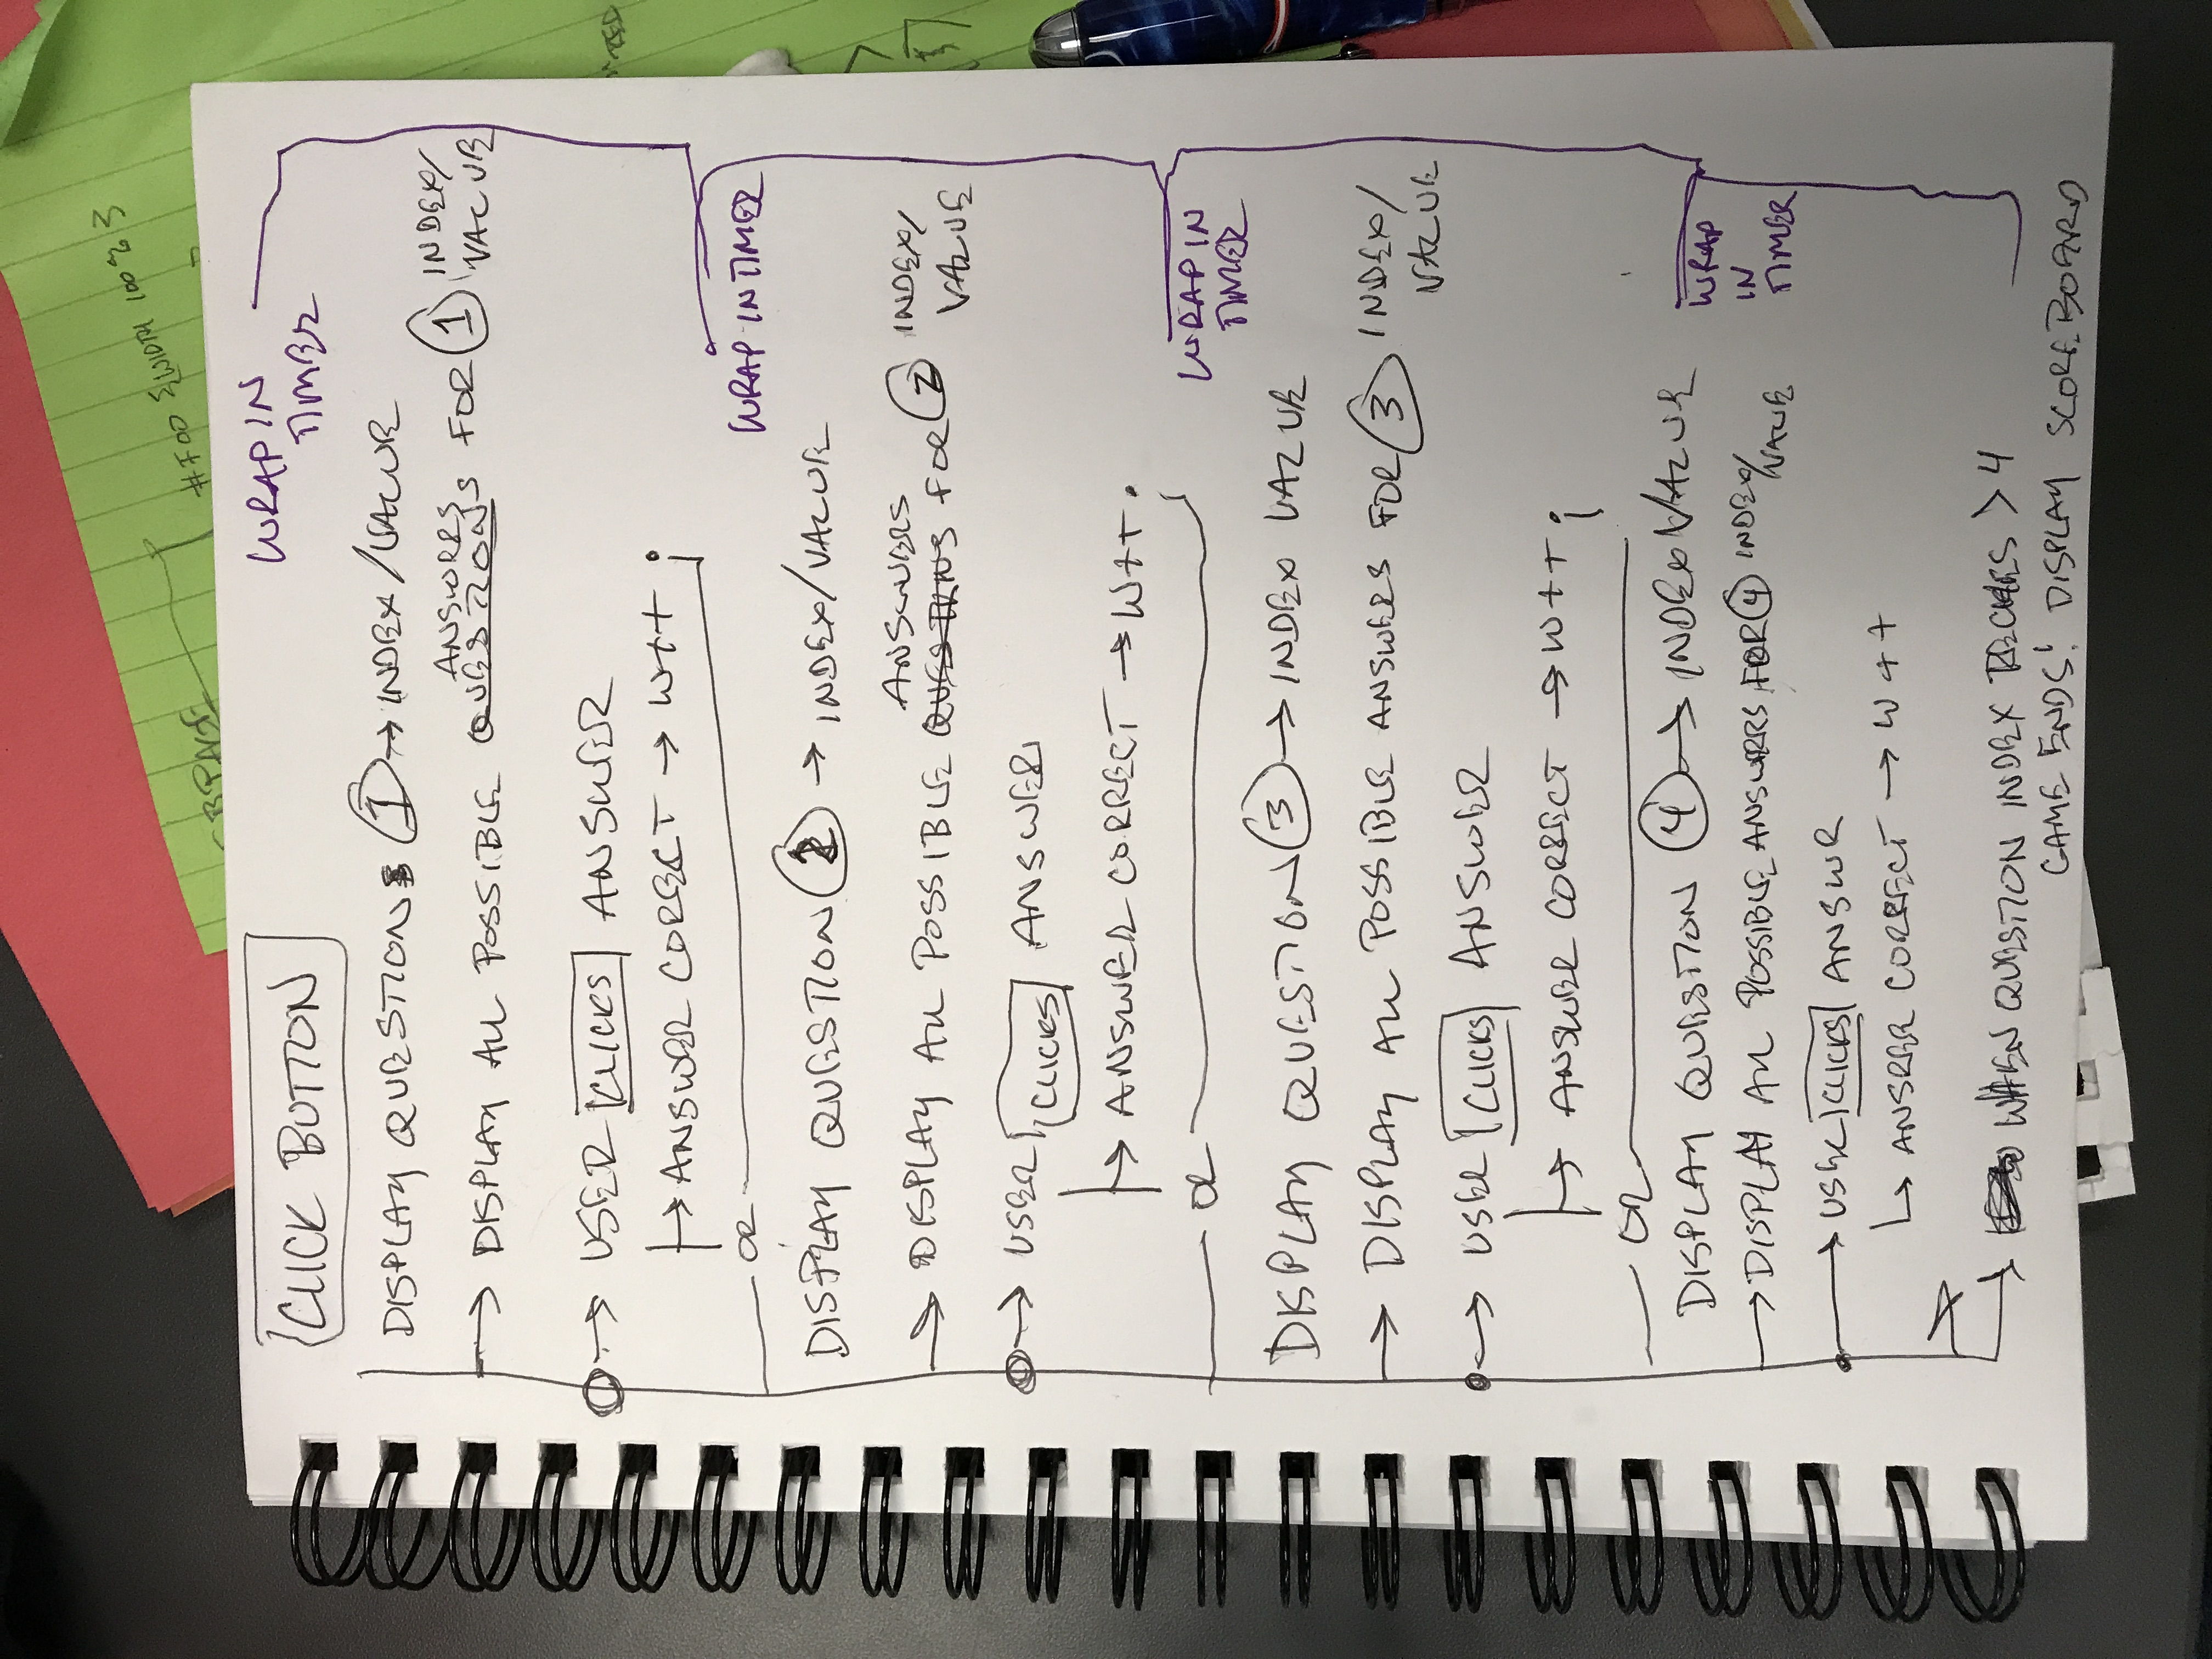 #FOO {WIDTH 100%}
CLICK BUTTON
WRAP IN
TIMER
DISPLAY QUESTIONS 1 → INDEX/VALUE
ANSWERS
→ DISPLAY ALL POSSIBLE QUESTIONS FOR 1 INDEX/
VALUE
→ USER CLICKS ANSWER
→ ANSWER CORRECT → W++;
OR
WRAP IN TIMER
DISPLAY QUESTION 2 → INDEX/VALUE
ANSWERS
→ DISPLAY ALL POSSIBLE QUESTIONS FOR 2 INDEX/
VALUE
→ USER CLICKS ANSWER
→ ANSWER CORRECT → W++;
OR
WRAP IN
TIMER
DISPLAY QUESTION 3 → INDEX VALUE
→ DISPLAY ALL POSSIBLE ANSWERS FOR 3 INDEX/
VALUE
→ USER CLICKS ANSWER
→ ANSWER CORRECT → W++;
OR
DISPLAY QUESTION 4 → INDEX VALUE
WRAP
IN
TIMER
→ DISPLAY ALL POSSIBLE ANSWERS FOR 4 INDEX/
VALUE
→ USER CLICKS ANSWR
→ ANSRER CORRECT → W++
→ WHEN QUESTION INDEX RECHES > 4
GAME ENDS! DISPLAY SCOREBOARD